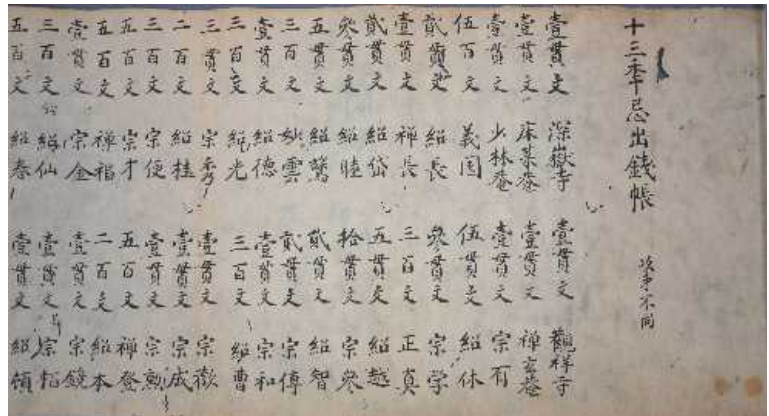 十三季忌出銭帳 次第不同
壹貫文 深嶽寺 壹貫文 觀祥寺
壹貫文 床菜庵 壹貫文 禅玄庵
壹貫文 少林庵 壹貫文 宗有
伍百文 義国 伍貫文 紹休
貳貫文 紹長 参貫文 宗学
壹貫文 禅長 三百文 正真
貳貫文 紹岱 五貫文 紹越
参貫文 紹睦 拾貫文 宗参
五貫文 紹 貳貫文 紹智
三百文 妙雲 貳貫文 宗傅
壹貫文 紹德 壹貫文 宗和
三百文 紹光 三百文 紹曹
三貫文 宗秀 壹貫文 宗歓
二百文 紹桂 壹貫文 宗成
三百文 宗便 壹貫文 宗勲
五百文 宗才 五百文 禅登
五百文 禅福 二百文 紹本
壹貫文 宗金 壹貫文 宗鏡
三百文 紹仙 壹貫文 宗怡
五百文 紹春 壹貫文 紹領